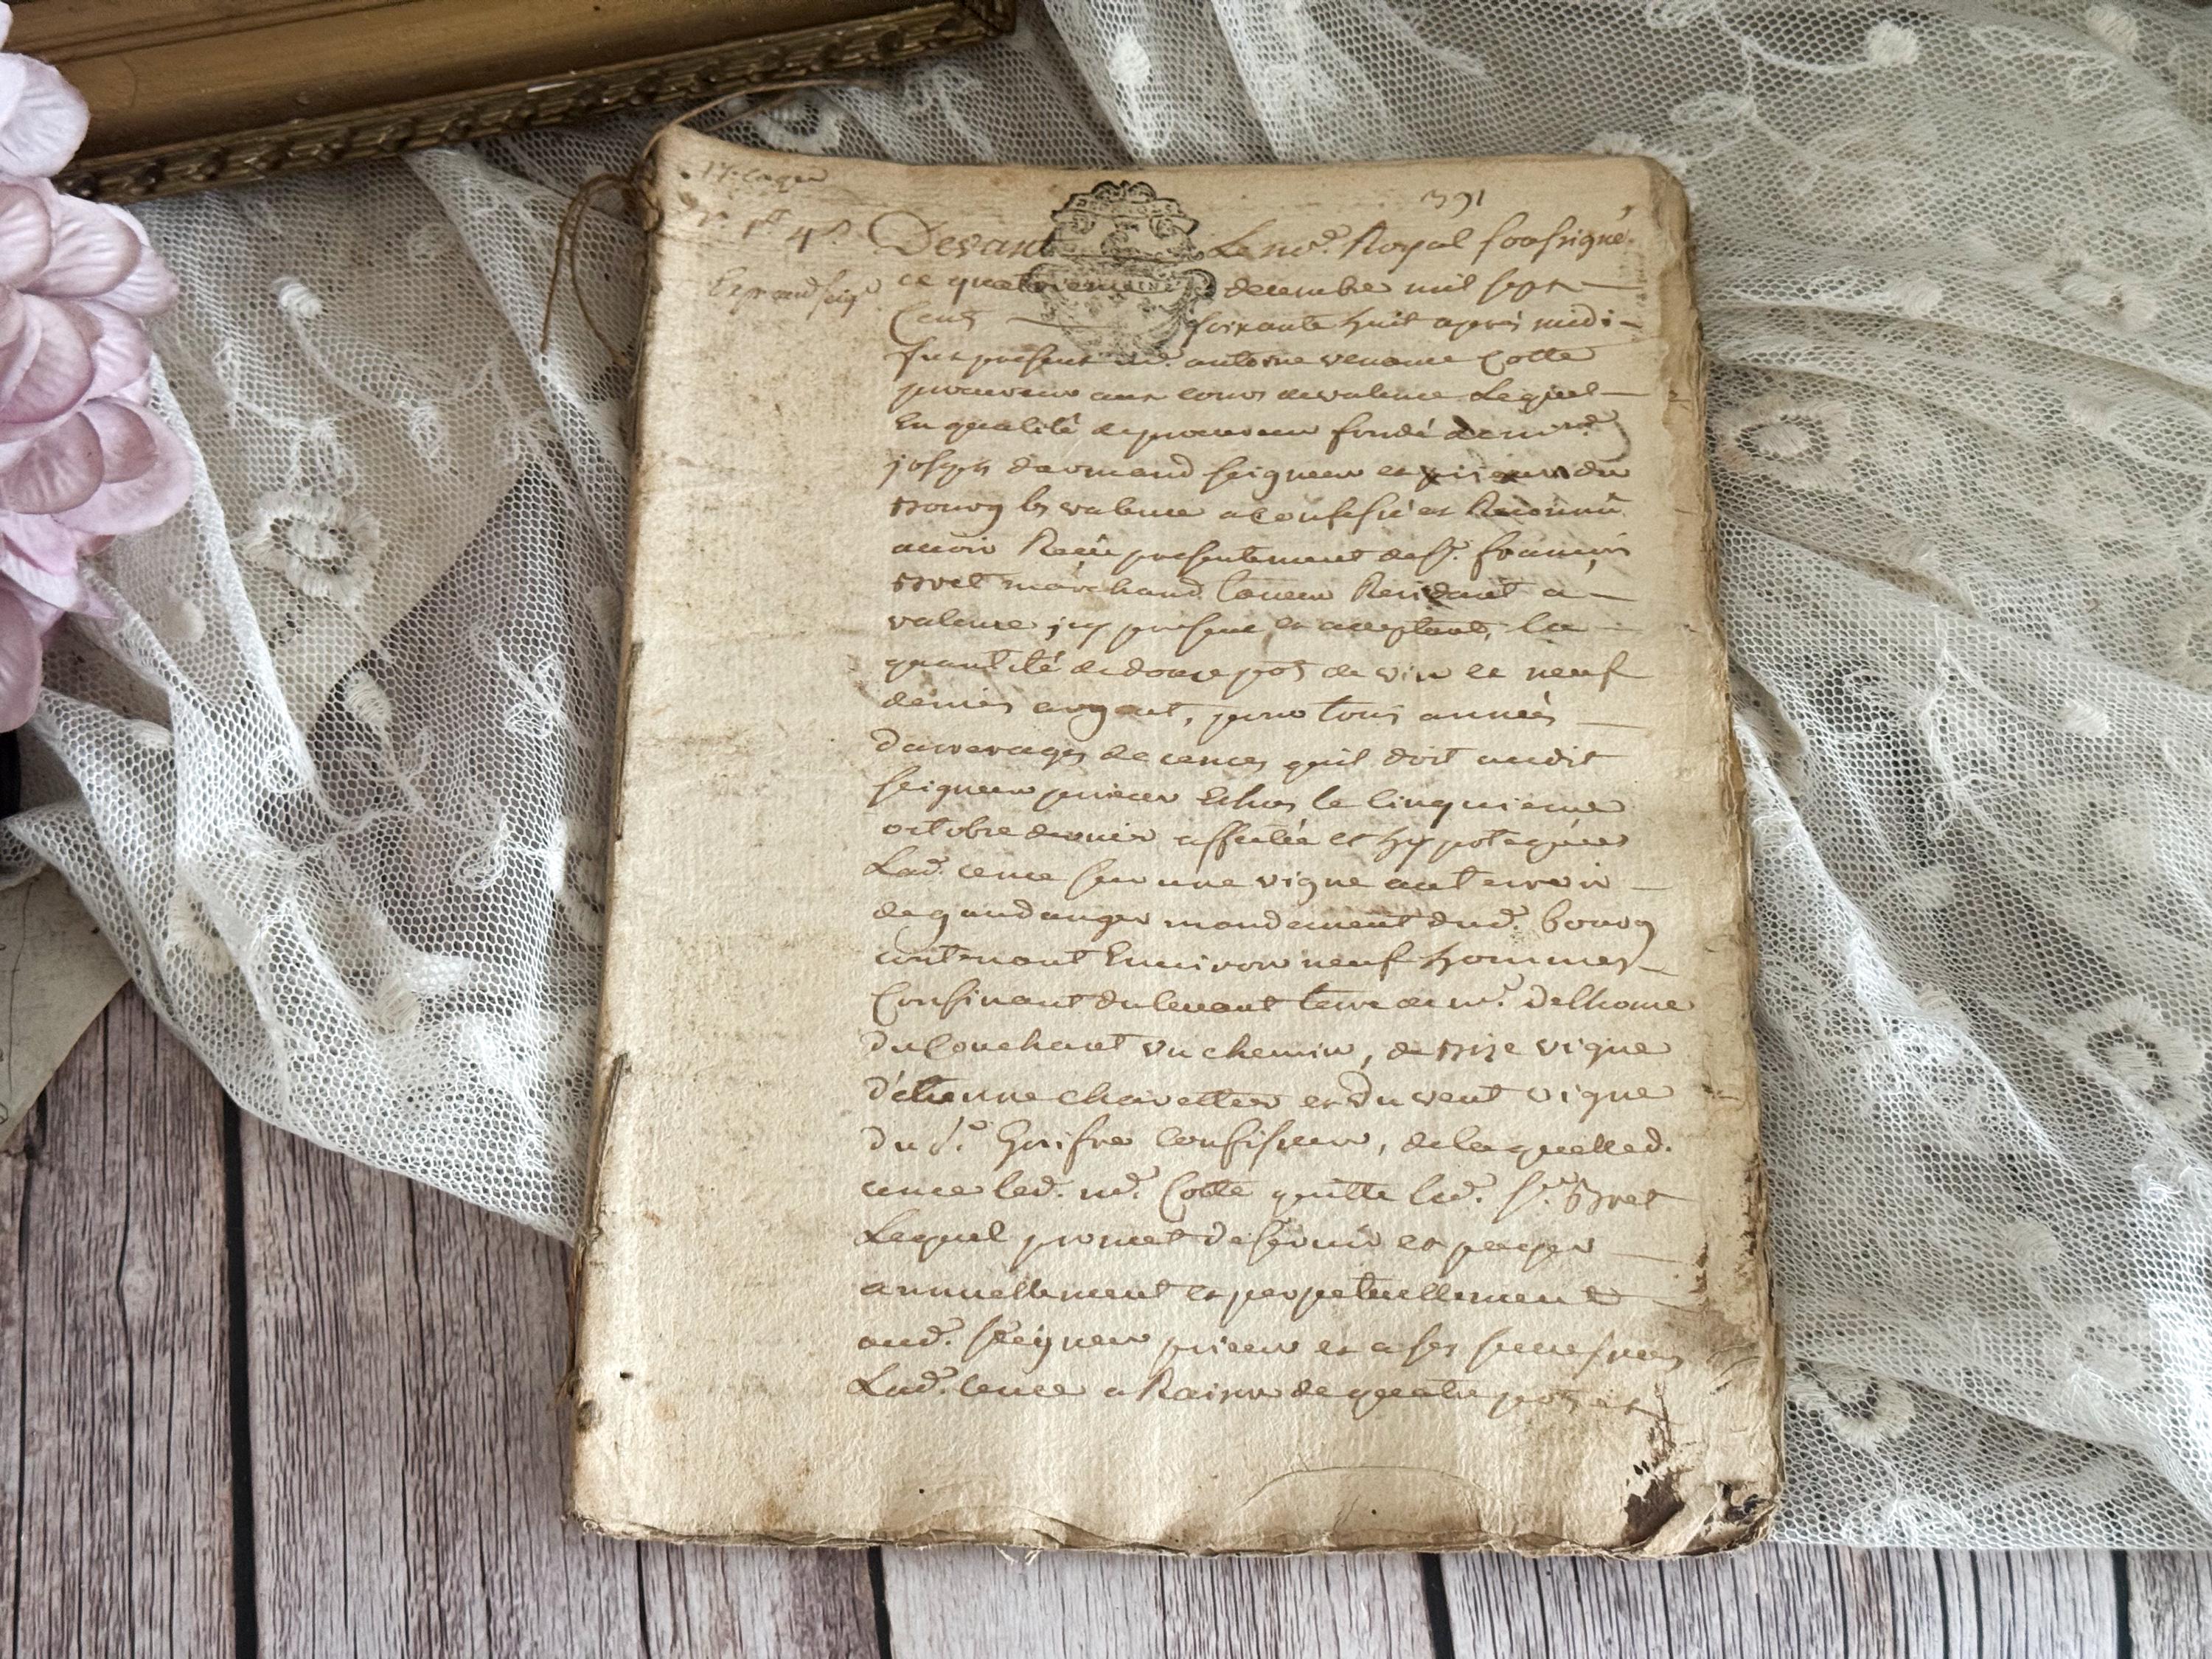 391
Devant Le nre. Royal soussigné
ce quatrieme decembre mil sept
Cens soixante huit après midi
fut présent me. antoine venance Cotte
procureur aux cours de valence Lequel
En qualité de procureur fondé de
joseph darmand seigneur et prieur du
Bourg les valence a confessé et Reconnu
avoir Reçu presentement de sr. francois
Bret marchand Residant a
valence, icy présent et acceptant, la
quantité de douze pots de vin et neuf
deniers argent, pour trois années
d'arrerages de cences quil doit audit
seigneur prieur Echus le cinquieme
octobre dernier affectée et hypotequées
Lad. cence sur une vigne au terroir
de gandanger mandement dud. bourg
contenant Environ neuf hommes
Confinant du levant terre de mr. delhome
du Couchant un chemin, de Bize vigne
d'étienne charettier et du vent vigne
du sr. confiseur, de laquelle d.
cence led. me. Cotte quitte led. sr. Bret
Lequel promet de servir et payer
annuellement et perpetuellement
aud. seigneur prieur et a ses successeurs
Lad. cence a Raison de quatre pots et